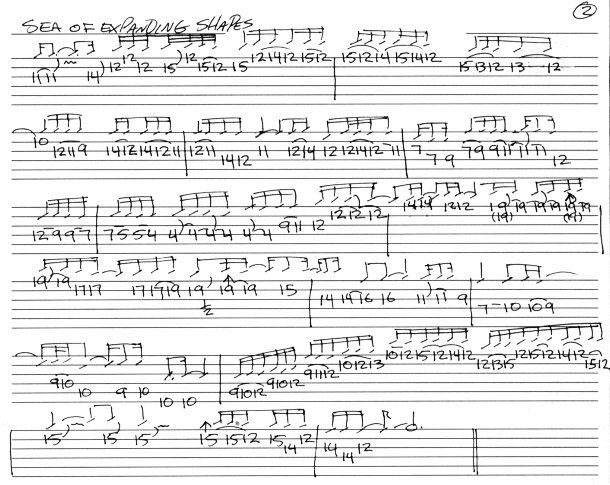 SEA OF EXPANDING SHAPES 2
11 11 14 12 12 12 15 12 15 12 15 12 14 12 15 12 15 12 14 15 14 12 15 13 12 13 12
10 12 11 9 14 12 14 12 11 12 11 14 12 11 12 14 12 12 14 12 11 7 7 9 7 9 9 11 11 11 12
12 9 9 7 7 5 5 4 4 4 4 4 4 4 9 11 12 12 12 12 14 19 12 12 19 (19) 19 19 19 19 (19) 19
19 19 17 17 17 17 19 19 1/2 19 19 15 14 14 16 16 11 11 9 7 10 10 9
9 10 10 9 10 10 10 9 10 12 9 10 12 9 11 12 10 12 13 10 12 15 12 14 12 12 13 15 12 15 12 14 12 15 12
15 15 15 15 15 12 15 14 12 14 14 12